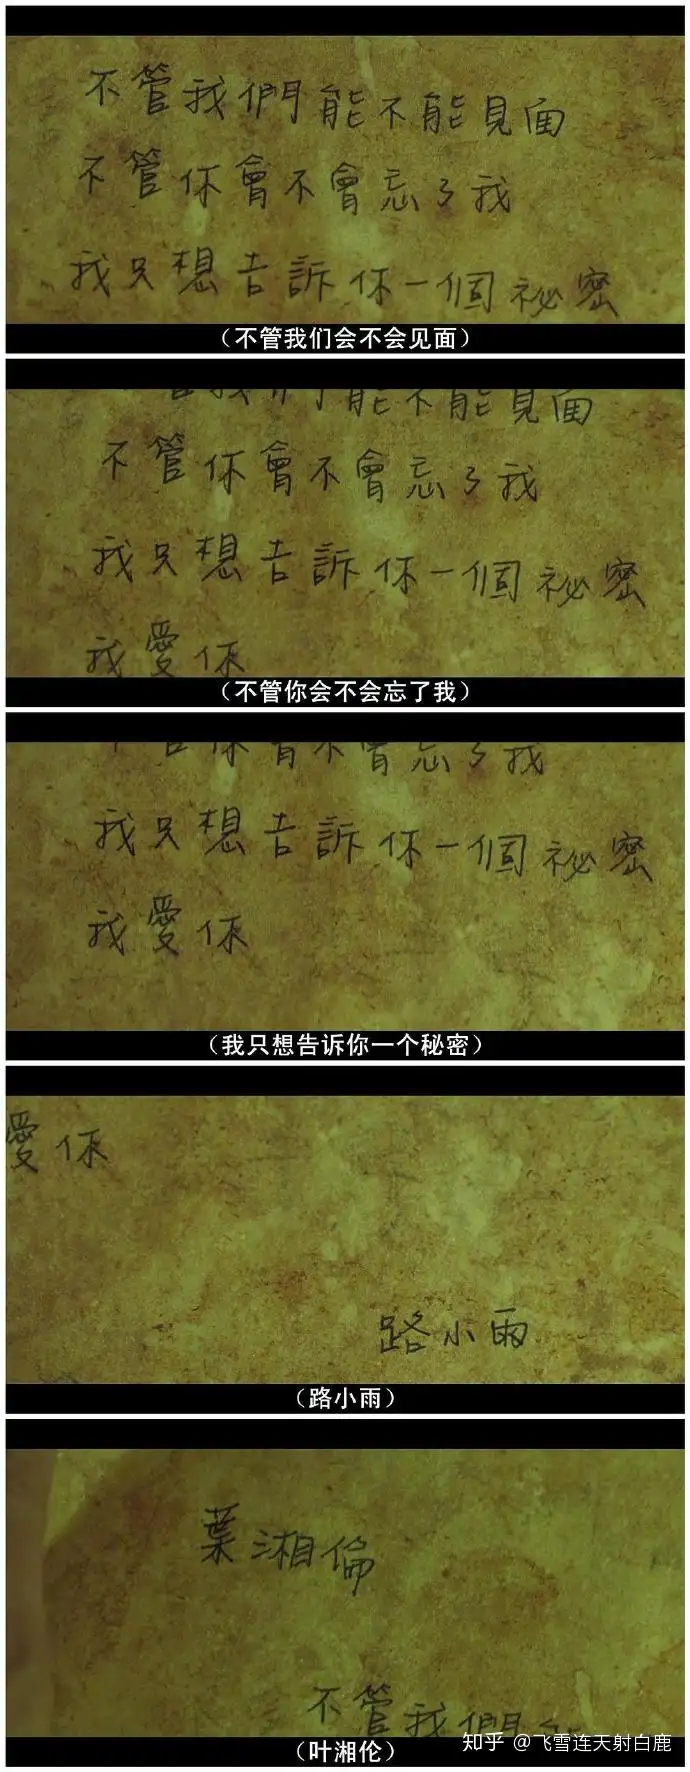 不管我們能不能見面
不管你會不會忘了我
我只想告訴你一個祕密
（不管我们会不会见面）
管我們能不能見面
不管你會不會忘了我
我只想告訴你一個祕密
我愛你
（不管你会不会忘了我）
不管你會不會忘了我
我只想告訴你一個祕密
我愛你
（我只想告诉你一个秘密）
愛你
路小雨
（路小雨）
葉湘倫
不管我們
（叶湘伦）
知乎 @飞雪连天射白鹿